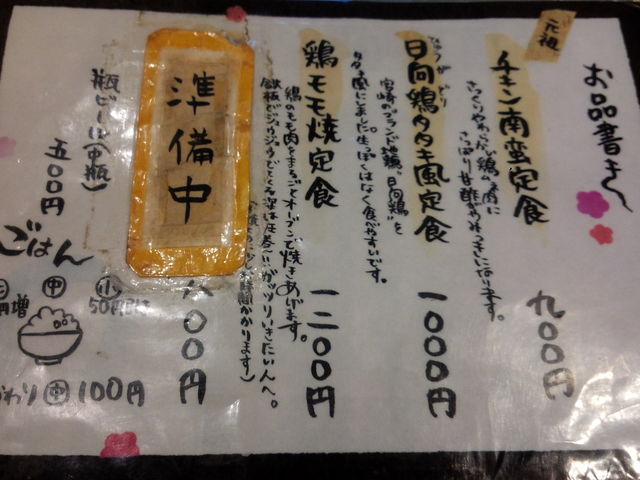 お品書き
元祖
チキン南蛮定食
九〇〇円
さっくりやわらかい鶏ムネ肉に
さっぱり甘酢がやみつきになります。
ひゅうがどり
日向鶏タタキ風定食
一〇〇〇円
宮崎のブランド地鶏"日向鶏"を
タタキ風にしました。生っぽくはなく食べやすいです。
鶏モモ焼定食
一二〇〇円
鶏のモモ肉をまるごとオーブンで焼きあげます。
鉄板でジュウジュウでてくる姿は圧巻!!ガッツリいきたい人へ。
お時間かかります)
準備中
八〇〇円
瓶ビール(中瓶)
五〇〇円
ごはん
小
50円
中
円増
わり 中 100円